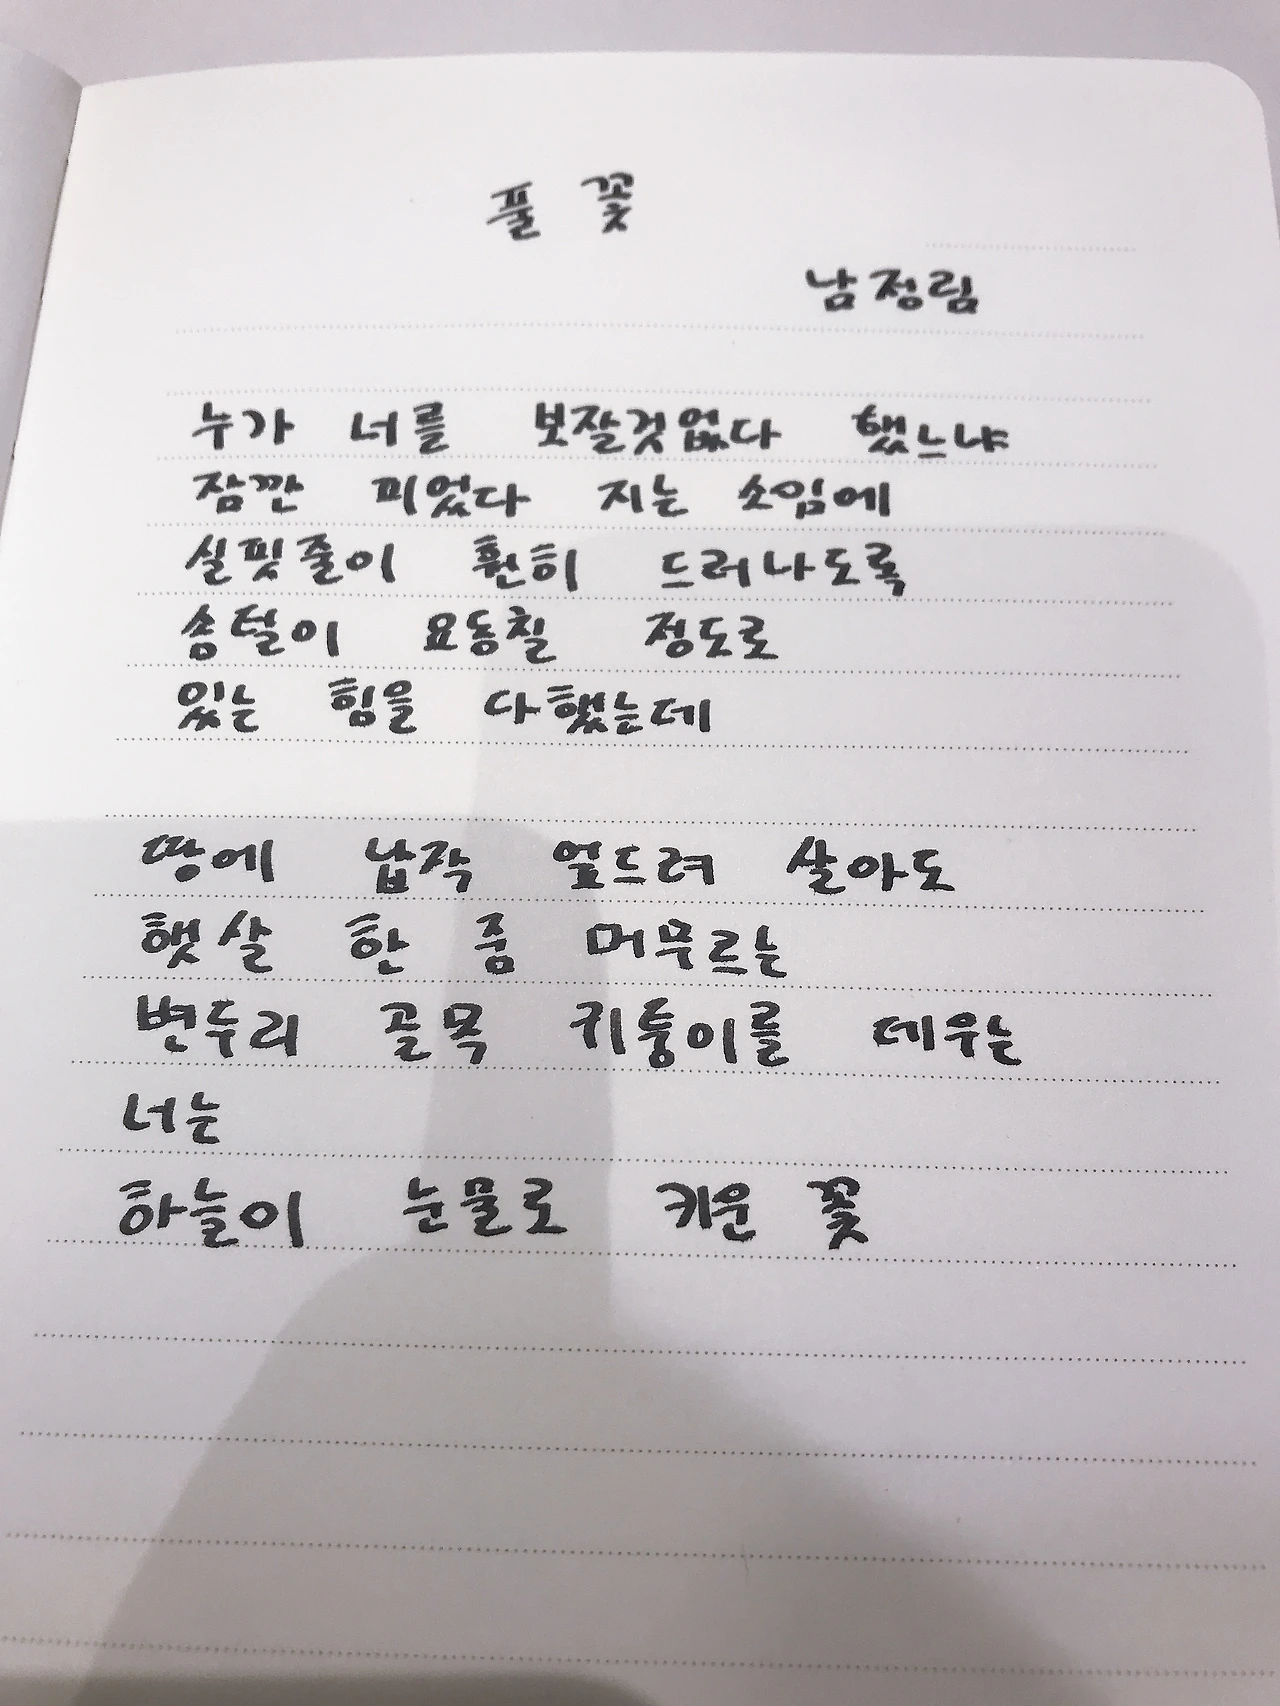 풀 꽃
남정림
누가 너를 보잘것없다 했느냐
잠깐 피었다 지는 소임에
실핏줄이 훤히 드러나도록
솜털이 요동칠 정도로
있는 힘을 다했는데
땅에 납작 엎드려 살아도
햇살 한 줌 머무르는
변두리 골목 귀퉁이를 데우는
너는
하늘이 눈물로 키운 꽃